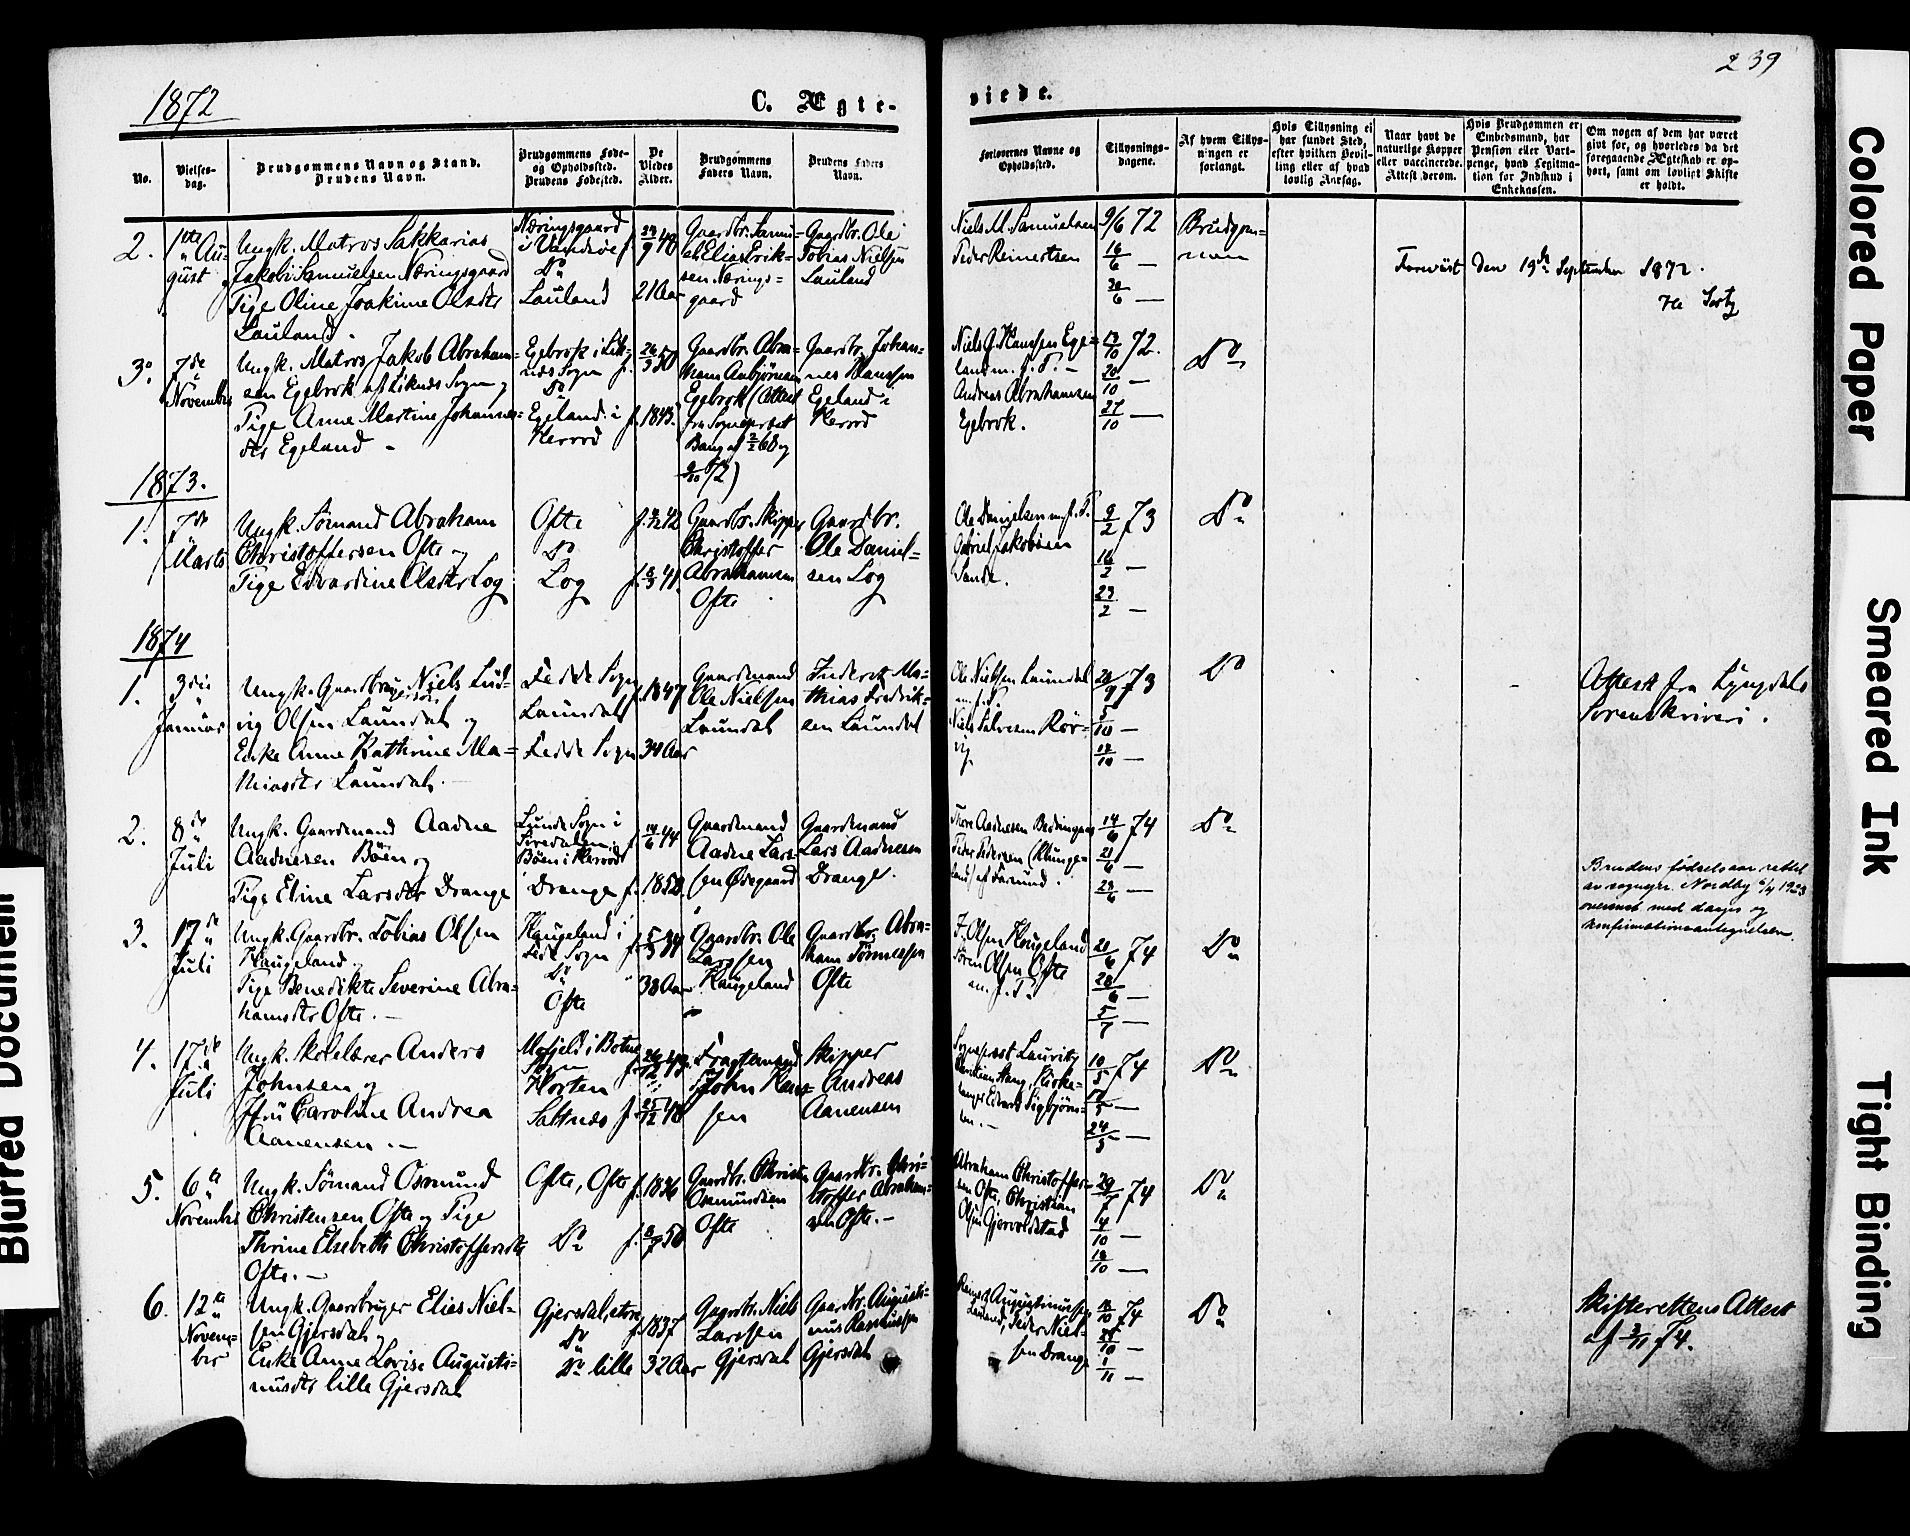 239
1872
C. Ægte-
viede.
No.
Vielses-
dag.
Brudgommens Navn og Stand.
Brudens Navn.
Brudgommens Føde-
og Opholdssted.
Brudens Fødested.
De
Viedes
Alder.
Brudgommens
Faders Navn.
Brudens Faders
Navn.
Forlovernes Navne og
Opholdssted.
Tillysnings-
dagene.
Af hvem Tillys-
ningen er
forlangt.
Hvis Tillysning ei
har fundet Sted,
efter hvilken Bevil-
ling eller af hvad
lovlig Aarsag.
Naar havt de
naturlige Kopper
eller vaccinerede.
Attest derom.
Hvis Brudgommen er
Embedsmand, har
Pension eller Vart-
penge, hvad Legitima-
tion for Indskud i
Enkekassen.
Om nogen af dem har været
gift før, og hvorledes da det
foregaaende Ægteskab er op-
hørt, samt om lovligt Skifte
er holdt.
2.
1ste Au-
gust
Ungk. Matros Sakkarias
Jakob Samuelsen Næringsgaard
Pige Oline Joakime Olsdtr
Lauland.
Næringsgaard
i Vandsøe
Do
Lauland
21 Aar
Gaardbr. Samu-
el Elias Erik-
sen Nærings-
gaard
Gaardbr. Ole
Tobias Nielsen
Lauland
Niels M. Samuelsen
Peder Reinertsen
9/6 72
16/6 —
30/6 —
Brudgom-
men
Forevist den 19de September 1872.
3.
7de
November
Ungk. Matros Jakob Abraham-
sen Egebrok af Liknes Sogn og
Pige Anne Martine Johannes-
dtr Egeland -
Egebrok i Lik-
nes Sogn
Do
Egeland i
Herred
f. 26/3 50
f. 1843.
Gaardbr. Abra-
ham Asbjørnsen
Egebrok (Attest
fra Sognepræst
Bang af 2/2 68 og
/72)
Gaardbr. Johan-
nes Hanssen
Egeland i
Herred
Niels G. Hanssen Ege-
land m. f. P. -
Andreas Abrahamsen
Egebrok.
13/10 72.
20/10 —
27/10 —
Do
1873.
1.
7de
Marts
Ungk. Sømand Abraham
Christoffersen Ofte og
Pige Edvardine Olsdtr Log
Ofte
Do
Log
f. 4/2 42
f. 8/3 41.
Gaardbr. Skipper
Christoffer
Abrahamsen
Ofte
Gaardbr.
Ole Daniel-
sen Log
Ole Danielsen m. f. P.
Gabriel Jakobsen
Sande.
9/2 73
16/2 —
23/2 —
Do
1874
1.
3die
Januar
Ungk. Gaardbrugersøn Niels Lud-
vig Olsen Laundal og
Enke Anne Kathrine Ma-
thiasdtr Laundal. -
Fedde Sogn
Laundal
Fedde Sogn
f. 1847
34 Aar
Gaardmand
Ole Nielsen
Laundal
Inderst Ma-
thias Fredrik-
sen Laundal
Ole Nielsen Laundal
m. f. P.
Niels Salvesen Rør-
vig
28/9 73
5/10 —
12/10 —
Do
Attest fra Lyngdals
Sorenskriveri.
2.
8de
Juli
Ungk. Gaardmand Aadne
Aadnesen Bøen og
Pige Eline Larsdtr Drange
Lunde Sogn i
Siredalen,
Bøen i Herred
Drange
f. 14/6 44
f. 1850.
Gaardmand
Aadne Lars-
sen Ødegaard
Gaardmand
Lars Aadnesen
Drange.
Thore Aadnesen
Peder Pedersen (Klunge-
land) af Farsund.
14/6 74
21/6 —
28/6 —
Do
Brudens fødselsaar rettet
av sognepr. Nordby 6/4 1923
overenst. med daaps og
konfirmationsantegnelsen.
3.
17de
Juli
Ungk. Gaardbr. Tobias Olsen
Haugeland og
Pige Benedikte Severine Abra-
hamsdtr Ofte. -
Haugeland i
Fede Sogn
Do
Ofte
38 Aar
Gaardbr. Ole
Larssen
Haugeland
Gaardbr. Abra-
ham Tønnessen
Ofte
Olsen Haugeland
Søren Olsen Ofte
m. f. P.
21/6 74
28/6 —
5/7 —
Do
4.
17de
Juli
Ungk. Skolelærer Anders
Johnsen og
Jfru Caroline Andrea
Aanensen. -
Mofjeld i Botne
Sogn
Horten
Saltnes
f. 25/12 48
Fragtemand
John Han-
sen
Skipper
Andreas
Aanensen
Sognepræst Lauritz
Christian Stang, Kirke-
sanger Edvard Sigbjørn-
sen. -
10/5 74
17/5 —
24/5 —
Do
5.
6te
November
Ungk. Sømand Osmund
Christensen Ofte og Pige
Thrine Elsebeth Christoffersdtr
Ofte. -
Ofte, Ofte
Do
f. 1836
f. 8/7 50
Gaardbr. Christen
Osmundsen
Ofte
Gaardbr. Chri-
stoffer Abraham-
sen Ofte. -
Abraham Christoffer-
sen Ofte, Christian
Olsen Gjervoldstad
29/7 74
4/10 —
18/10 —
Do
6.
12te
Novem-
ber
Ungk. Gaardbruger Elias Niel-
sen Gjersdal og
Enke Anne Lovise Augusti-
nusdtr lille Gjersdal
Gjersdal, store
Do
Do lille
f. 1837
32 Aar
Gaardbr. Niels
Larssen
Gjersdal
Gaardbr. Augusti-
nus Rasmussen
Gjersdal
Augustinussen
Lauland, Peder Niel-
sen Drange
18/10 74
25/10 —
1/11 —
Do
Skifterettens Attest
af 2/11 74.
Blurred Document
Colored Paper
Smeared Ink
Tight Binding